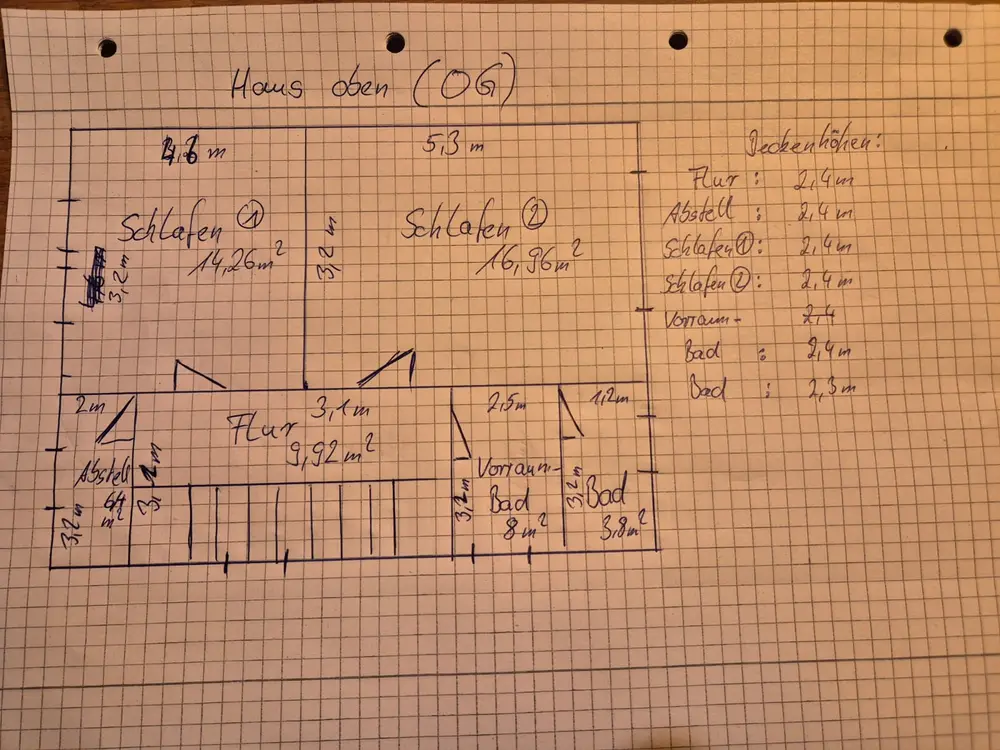 Haus oben (OG)
4,6 m
5,3 m
Schlafen ①
14,26 m²
3,2 m
3,2 m
Schlafen ②
16,96 m²
2 m
Abstell
64 m²
3,2 m
3,2 m
Flur
3,1 m
9,92 m²
2,5 m
Vorraum-
Bad
8 m²
3,2 m
1,2 m
3,2 m
Bad
3,8 m²
Deckenhöhen:
Flur : 2,4 m
Abstell : 2,4 m
Schlafen ①: 2,4 m
Schlafen ②: 2,4 m
Vorraum- 2,4
Bad : 2,4 m
Bad : 2,3 m